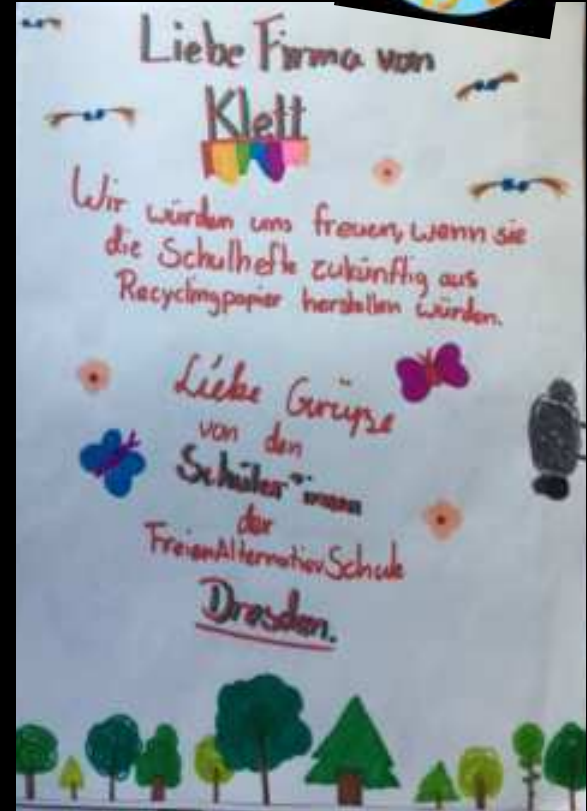 Liebe Firma von
Klett
Wir würden uns freuen, wenn sie
die Schulhefte zukünftig aus
Recyclingpapier herstellen würden.
Liebe Grüße
von den
Schüler*innen
der
Freien Alternativ Schule
Dresden.